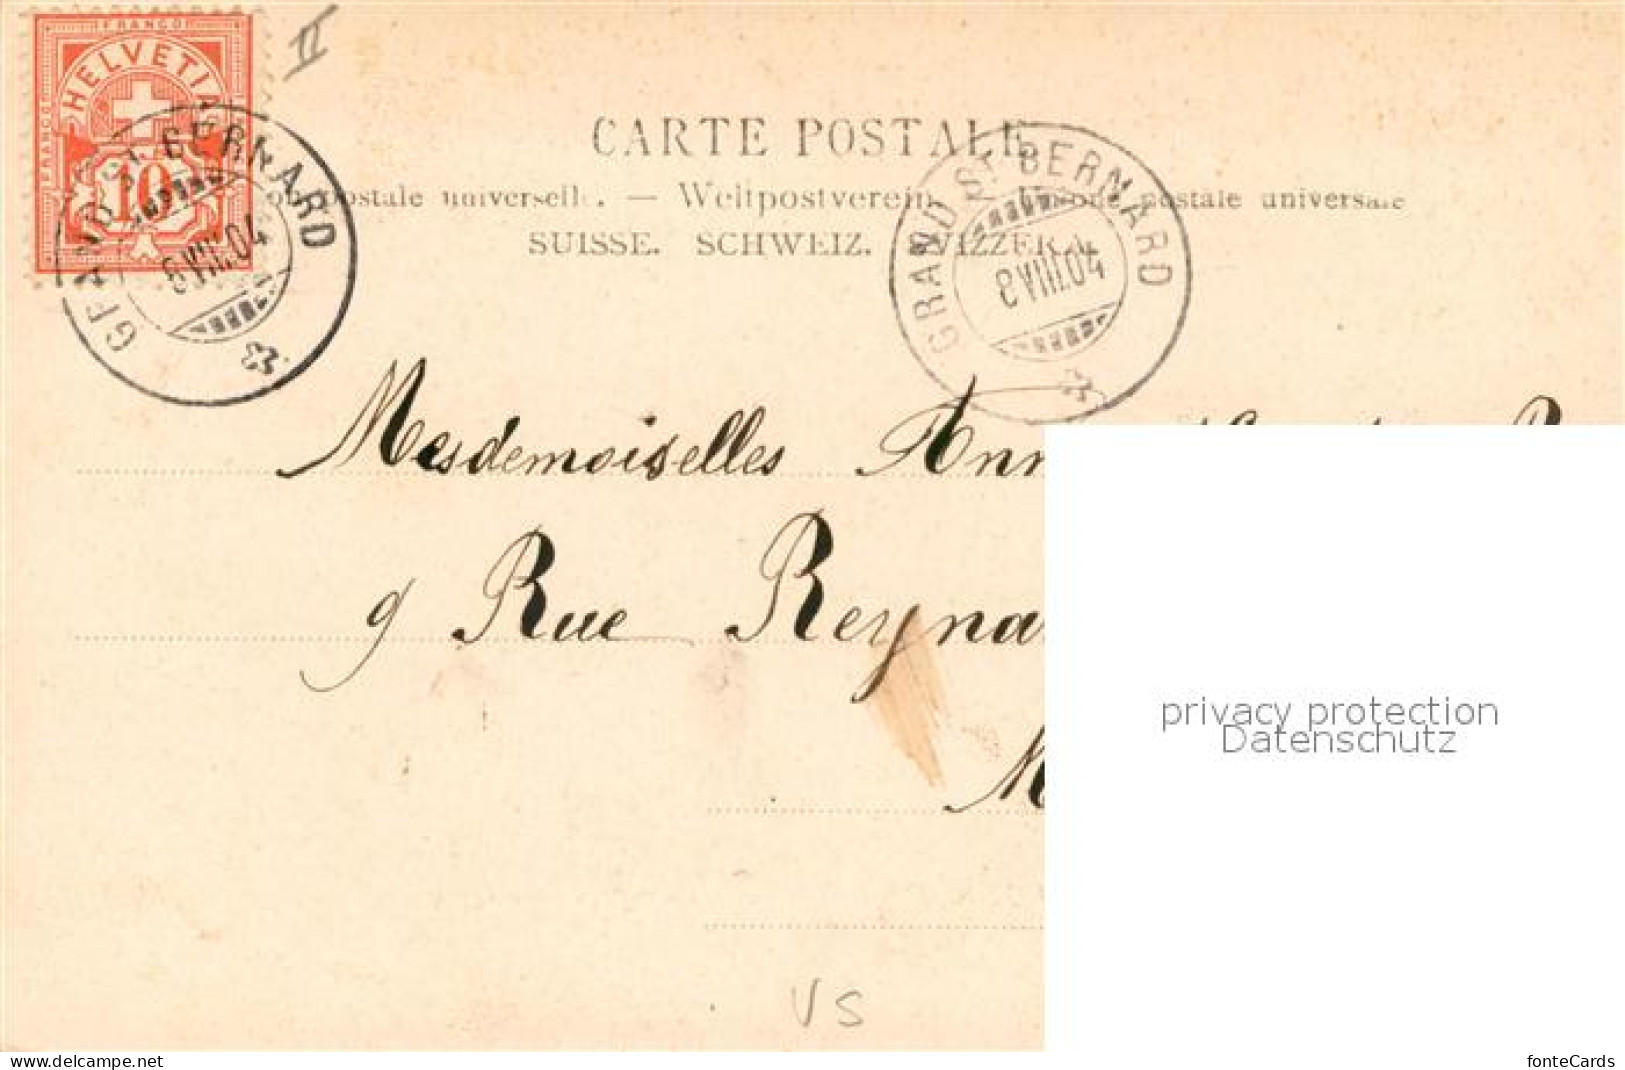 FRANCO
HELVETIA
FRANCO
10
II
GRAND ST BERNARD
8 VIII.04
CARTE POSTALE
postale universelle. — Weltpostverein. postale universale
SUISSE. SCHWEIZ. SVIZZERA.
GRAND ST BERNARD
8 VIII 04
Mesdemoiselles Ann
9 Rue Reyna
M
privacy protection
Datenschutz
VS
www.delcampe.net
your.collections
fonteCards